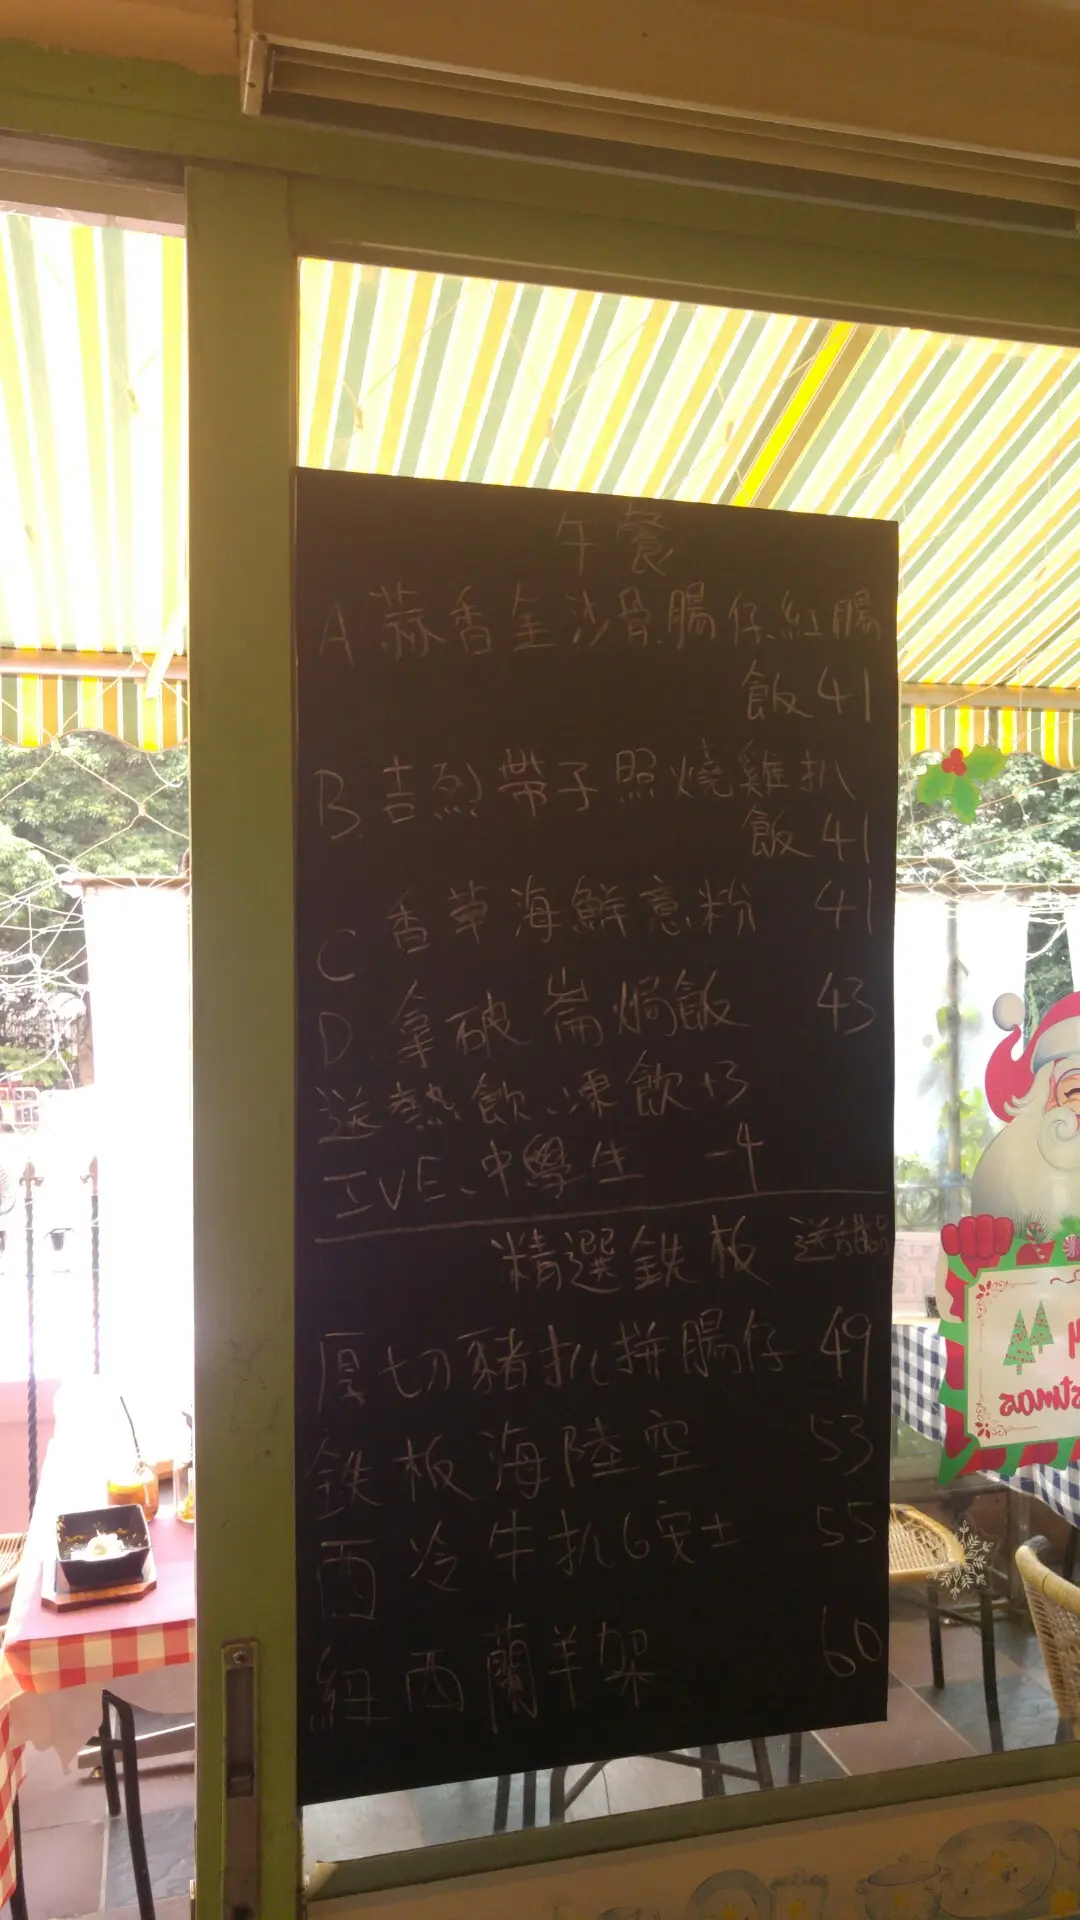 午餐
A 蒜香金沙骨.腸仔.紅腸
飯 41
B. 吉烈帶子照燒雞扒
飯 41
C 香草海鮮意粉 41
D. 拿破崙焗飯 43
送熱飲、凍飲+3
IVE、中學生 -4
精選鉄板 送甜品
厚切豬扒拼腸仔 49
鉄板海陸空 53
西冷牛扒6安士 55
紐西蘭羊架 60